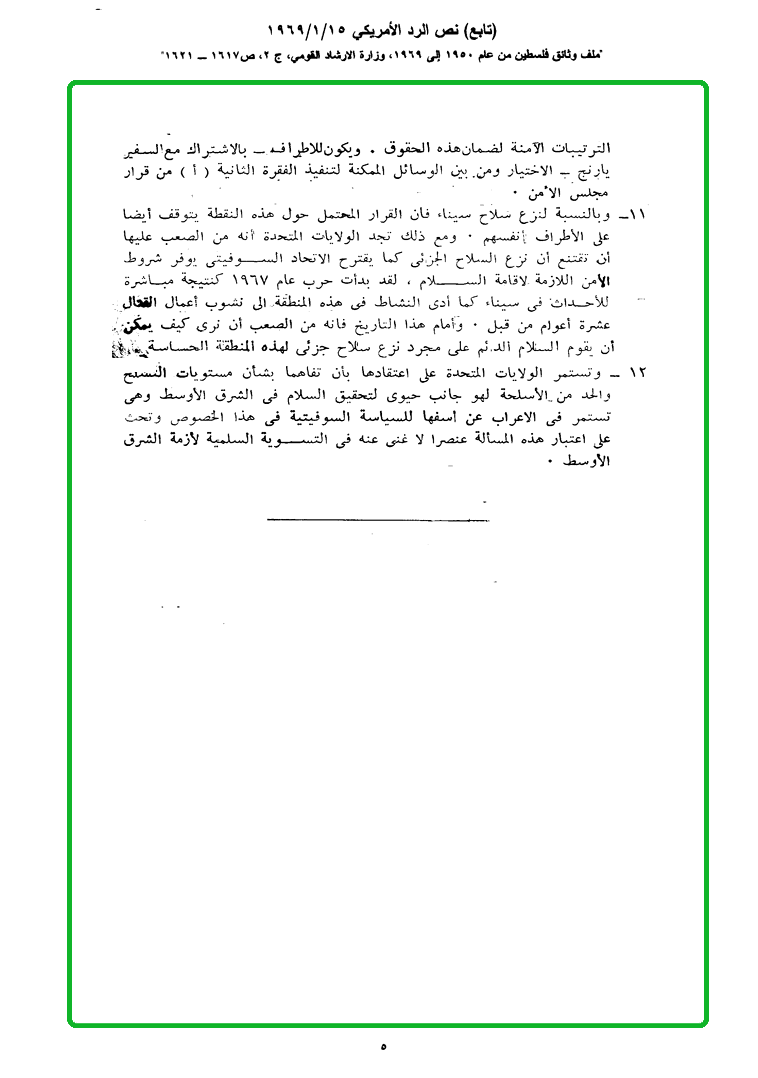 (تابع) نص الرد الأمريكي ١٩٦٩/١/١٥
"ملف وثائق فلسطين من عام ١٩٥٠ إلى ١٩٦٩، وزارة الارشاد القومي، ج ٢، ص١٦١٧ ــ ١٦٢١"
الترتيبات الآمنة لضمان هذه الحقوق . ويكون للاطراف ــ بالاشتراك مع السفير
يارنج ــ الاختيار ومن بين الوسائل الممكنة لتنفيذ الفقرة الثانية ( أ ) من قرار
مجلس الأمن .
١١ــ وبالنسبة لنزع سلاح سيناء فان القرار المحتمل حول هذه النقطة يتوقف أيضا
على الأطراف أنفسهم . ومع ذلك تجد الولايات المتحدة أنه من الصعب عليها
أن تقتنع أن نزع السلاح الجزئى كما يقترح الاتحاد الســوفيتى يوفر شروط
الأمن اللازمة لاقامة الســــلام ، لقد بدأت حرب عام ١٩٦٧ كنتيجة مباشرة
للأحداث فى سيناء كما أدى النشاط فى هذه المنطقة الى نشوب أعمال القتال
عشرة أعوام من قبل . وأمام هذا التاريخ فانه من الصعب أن نرى كيف يمكن
أن يقوم السلام الدائم على مجرد نزع سلاح جزئى لهذه المنطقة الحساسة
١٢ ــ وتستمر الولايات المتحدة على اعتقادها بأن تفاهما بشأن مستويات التسلح
والحد من الأسلحة لهو جانب حيوى لتحقيق السلام فى الشرق الأوسط وهى
تستمر فى الاعراب عن أسفها للسياسة السوفيتية فى هذا الخصوص وتحث
على اعتبار هذه المسألة عنصرا لا غنى عنه فى التســـوية السلمية لأزمة الشرق
الأوسط .
٥